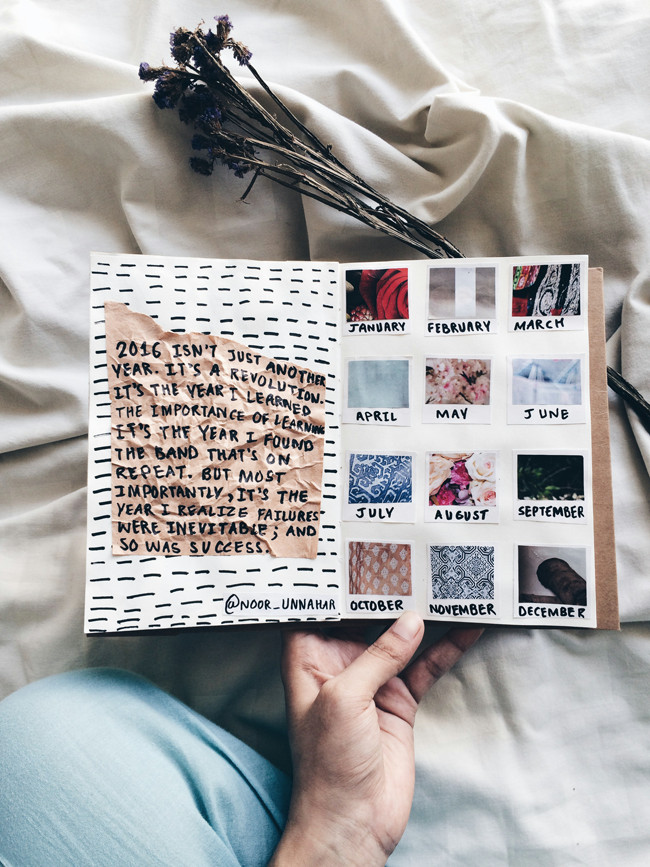 2016 ISN'T JUST ANOTHER
YEAR. IT'S A REVOLUTION.
IT'S THE YEAR I LEARNED
THE IMPORTANCE OF LEARNING
IT'S THE YEAR I FOUND
THE BAND THAT'S ON
REPEAT. BUT MOST
IMPORTANTLY, IT'S THE
YEAR I REALIZE FAILURES
WERE INEVITABLE; AND
SO WAS SUCCESS.
@NOOR_UNNAHAR
JANUARY
FEBRUARY
MARCH
APRIL
MAY
JUNE
JULY
AUGUST
SEPTEMBER
OCTOBER
NOVEMBER
DECEMBER